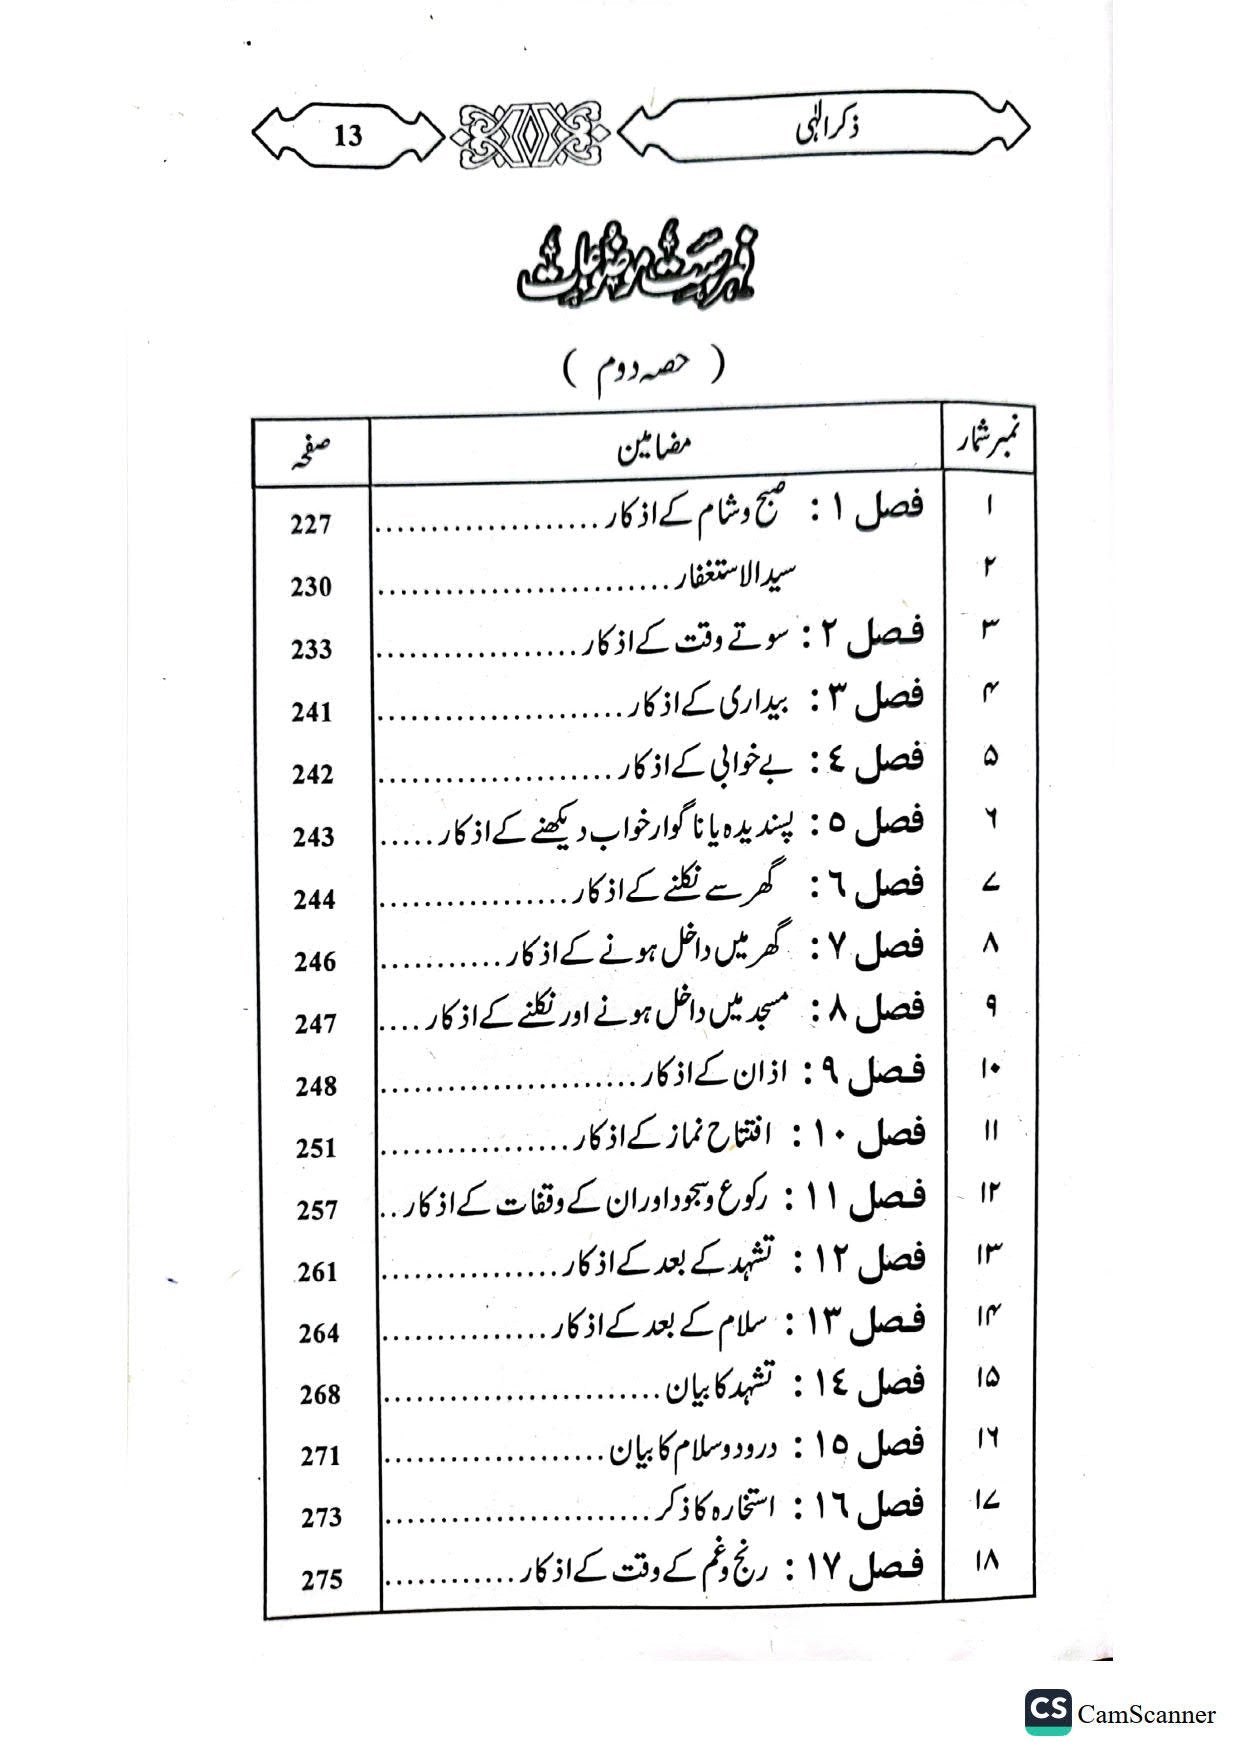 ذکر الٰہی
13
فہرست موضوعات
( حصہ دوم )
نمبر شمار مضامین صفحہ
۱ فصل ۱ : صبح وشام کے اذکار .................... 227
۲ سید الاستغفار .......................... 230
۳ فصل ۲ : سوتے وقت کے اذکار .................. 233
۴ فصل ۳ : بیداری کے اذکار ...................... 241
۵ فصل ٤ : بے خوابی کے اذکار ..................... 242
۶ فصل ٥ : پسندیدہ یا ناگوار خواب دیکھنے کے اذکار ..... 243
۷ فصل ٦ : گھر سے نکلنے کے اذکار ................. 244
۸ فصل ۷ : گھر میں داخل ہونے کے اذکار ........... 246
۹ فصل ۸ : مسجد میں داخل ہونے اور نکلنے کے اذکار .... 247
۱۰ فصل ۹ : اذان کے اذکار ....................... 248
۱۱ فصل ۱۰ : افتتاح نماز کے اذکار ................. 251
۱۲ فصل ۱۱ : رکوع وسجود اور ان کے وقفات کے اذکار .. 257
۱۳ فصل ۱۲ : تشہد کے بعد کے اذکار ................ 261
۱۴ فصل ۱۳ : سلام کے بعد کے اذکار ............... 264
۱۵ فصل ۱٤ : تشہد کا بیان ......................... 268
۱۶ فصل ۱٥ : درود وسلام کا بیان .................... 271
۱۷ فصل ۱٦ : استخارہ کا ذکر ........................ 273
۱۸ فصل ۱۷ : رنج وغم کے وقت کے اذکار ............ 275
CS CamScanner